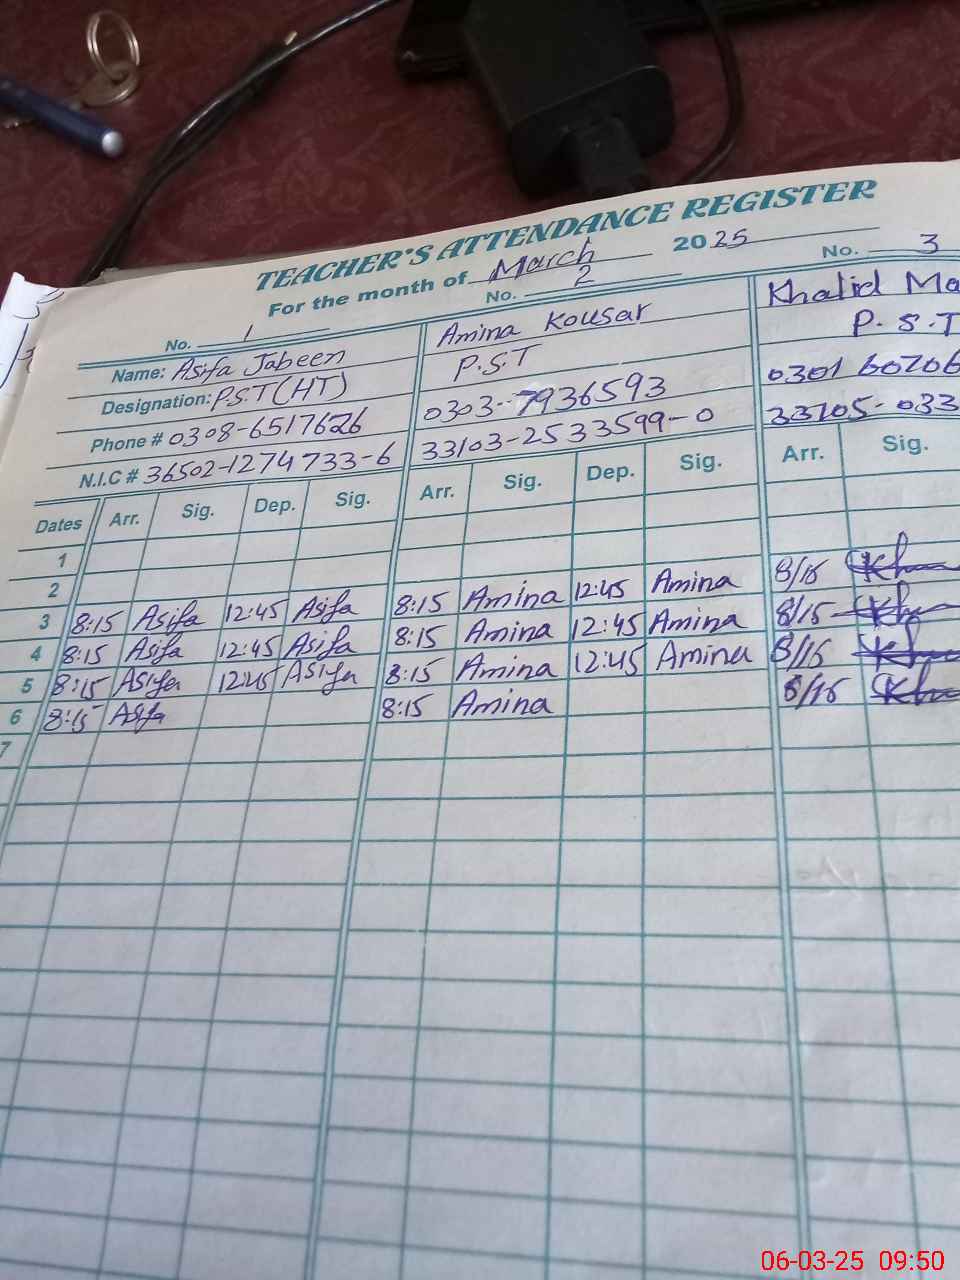 TEACHER'S ATTENDANCE REGISTER
For the month of March 2025
No. 1 No. 2 No. 3
Name: Asifa Jabeen Amina Kousar Khalid Ma
Designation: P.S.T (HT) P.S.T P.S.T
Phone # 0308-6517626 0303-7936593 0301 60706
N.I.C # 36502-1274733-6 33103-2533599-0 33105-033
Dates Arr. Sig. Dep. Sig. Arr. Sig. Dep. Sig. Arr. Sig.
1
2
3 8:15 Asifa 12:45 Asifa 8:15 Amina 12:45 Amina 8/15 Kha
4 8:15 Asifa 12:45 Asifa 8:15 Amina 12:45 Amina 8/15 Kha
5 8:15 Asifa 12:45 Asifa 8:15 Amina 12:45 Amina 8/15 Kha
6 8:15 Asifa 8:15 Amina 8/15 Kha
7
06-03-25 09:50